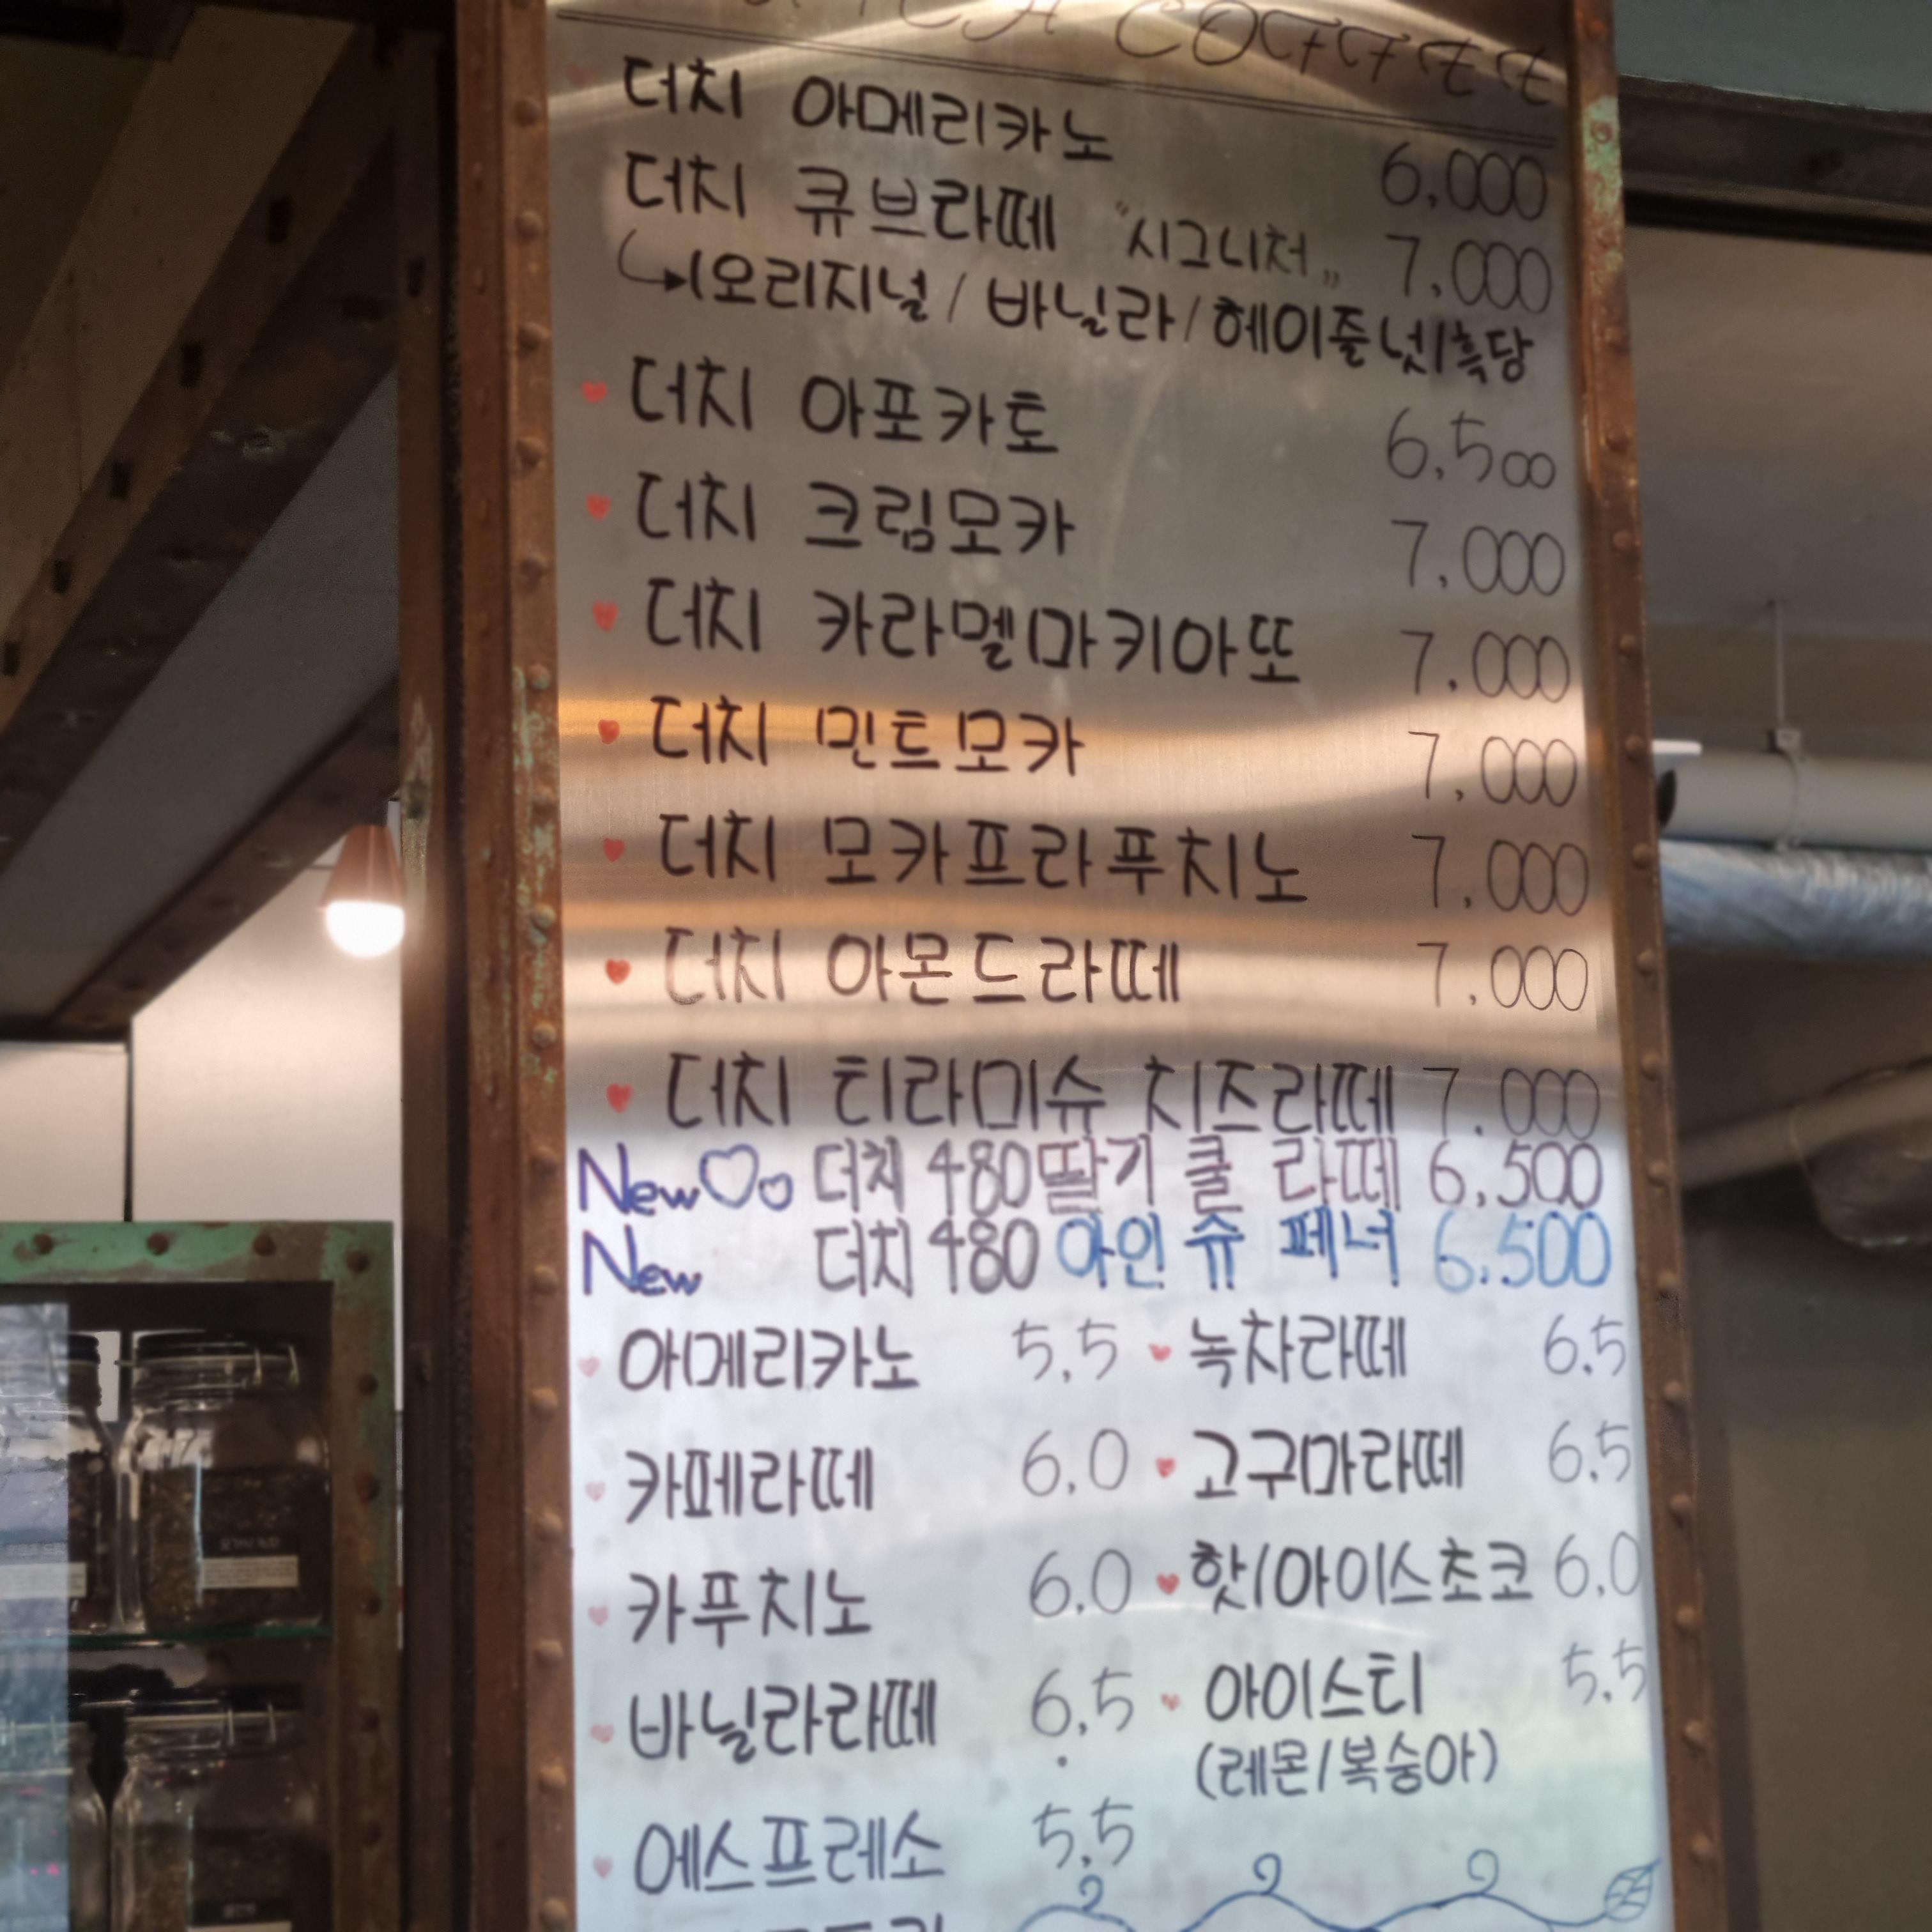 COFFEE
더치 아메리카노 6,000
더치 큐브라떼 "시그니처" 7,000
(오리지널/바닐라/헤이즐넛/흑당
더치 아포카토 6,500
더치 크림모카 7,000
더치 카라멜마키아또 7,000
더치 민트모카 7,000
더치 모카프라푸치노 7,000
더치 아몬드라떼 7,000
더치 티라미슈 치즈라떼 7,000
New 더치 480 딸기 쿨 라떼 6,500
New 더치 480 아인 슈 페너 6,500
아메리카노 5,5 녹차라떼 6,5
카페라떼 6,0 고구마라떼 6,5
카푸치노 6,0 핫/아이스초코 6,0
바닐라라떼 6,5 아이스티 5,5
(레몬/복숭아)
에스프레소 5,5